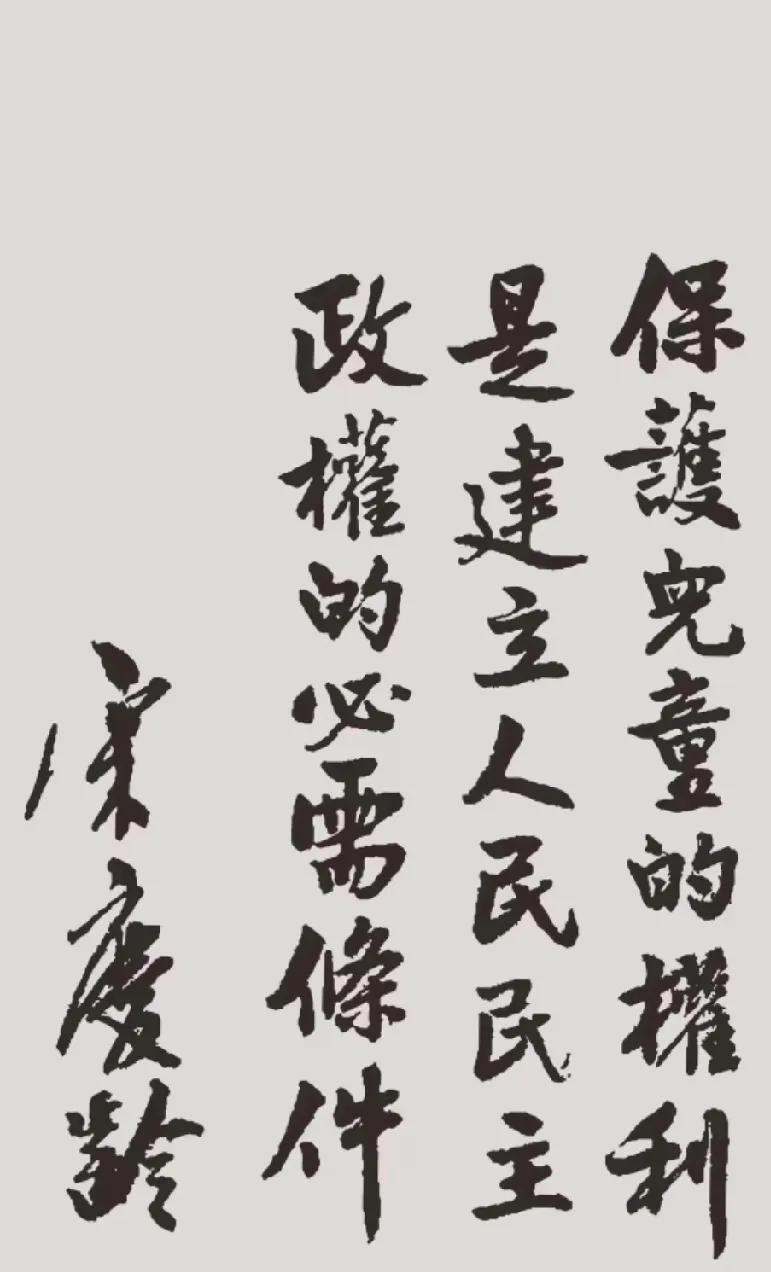 保護兒童的權利
是建立人民民主
政權的必需條件
宋慶齡